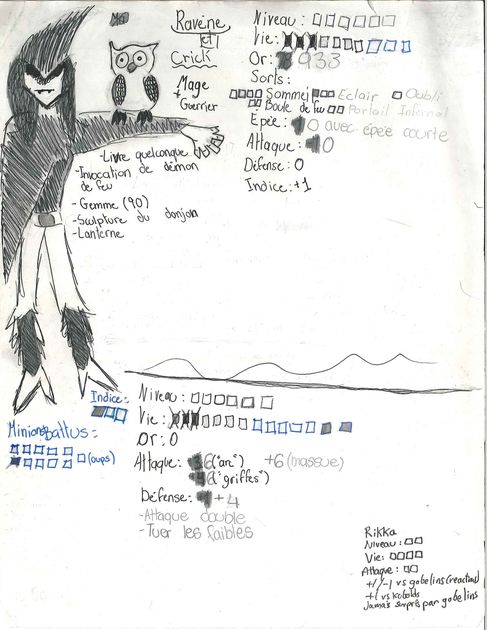 Ravène
et
Crick
Mage
+
Guerrier
Niveau:
Vie:
Or: 933
Sorts:
Sommeil Eclair Oubli
Boule de feu Portail Infernal
Epée: 10 avec épée courte
Attaque: 10
Défense: 0
Indice: +1
-Livre quelconque
-Invocation de démon
de feu
-Gemme (90)
-Sculpture du donjon
-Lanterne
Indice:
Niveau:
Vie:
Or: 0
Minions battus:
(oups)
Attaque: +6 ("arc") +6 (massue)
("griffes")
Défense: +4
-Attaque double
-Tuer les faibles
Rikka
Niveau:
Vie:
Attaque:
+1/-1 vs gobelins (reaction)
+1 vs kobolds
Jamais surpris par gobelins